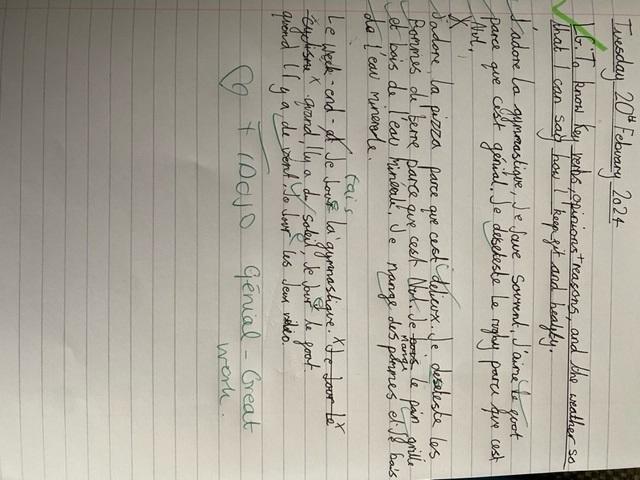 Tuesday 20th February 2024
LG: To know key verbs, opinions + reasons, and the weather so
that I can say how I keep fit and healthy.
J'adore la gymnastique, Je joue souvent. J'aime le foot
parce que c'est génial. Je deseteste le rugby parce que c'est
Nul.
J'adore la pizza parce que c'est delieux. Je deseteste les
pommes de terre parce que c'est Nul. Je mange le pain grille
et bois de l'eau minerale. Je mange des pommes et Je bois
de l'eau minerale.
fais
Le week-end Je Joue la gymnastique. Je Joue le
cyclisme quand il y a du soleil, Je Joue le foot
quand il y a de vent. Je Joue les Jeux vidéo.
Génial - Great
work.